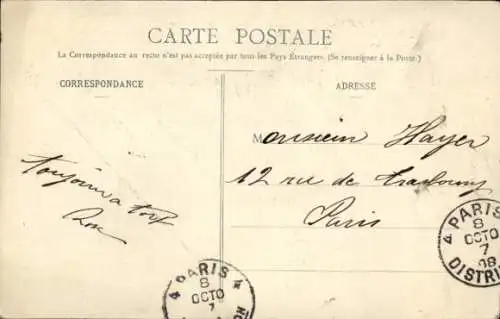 CARTE POSTALE
La Correspondance au recto n'est pas acceptée par tous les Pays Étrangers. (Se renseigner à la Poste.)
CORRESPONDANCE
ADRESSE
Monsieur Hayer
12 rue de Strasbourg
Paris
toujours a toi
PARIS
8
OCTO
7
08
DISTRI
PARIS
8
OCTO
7